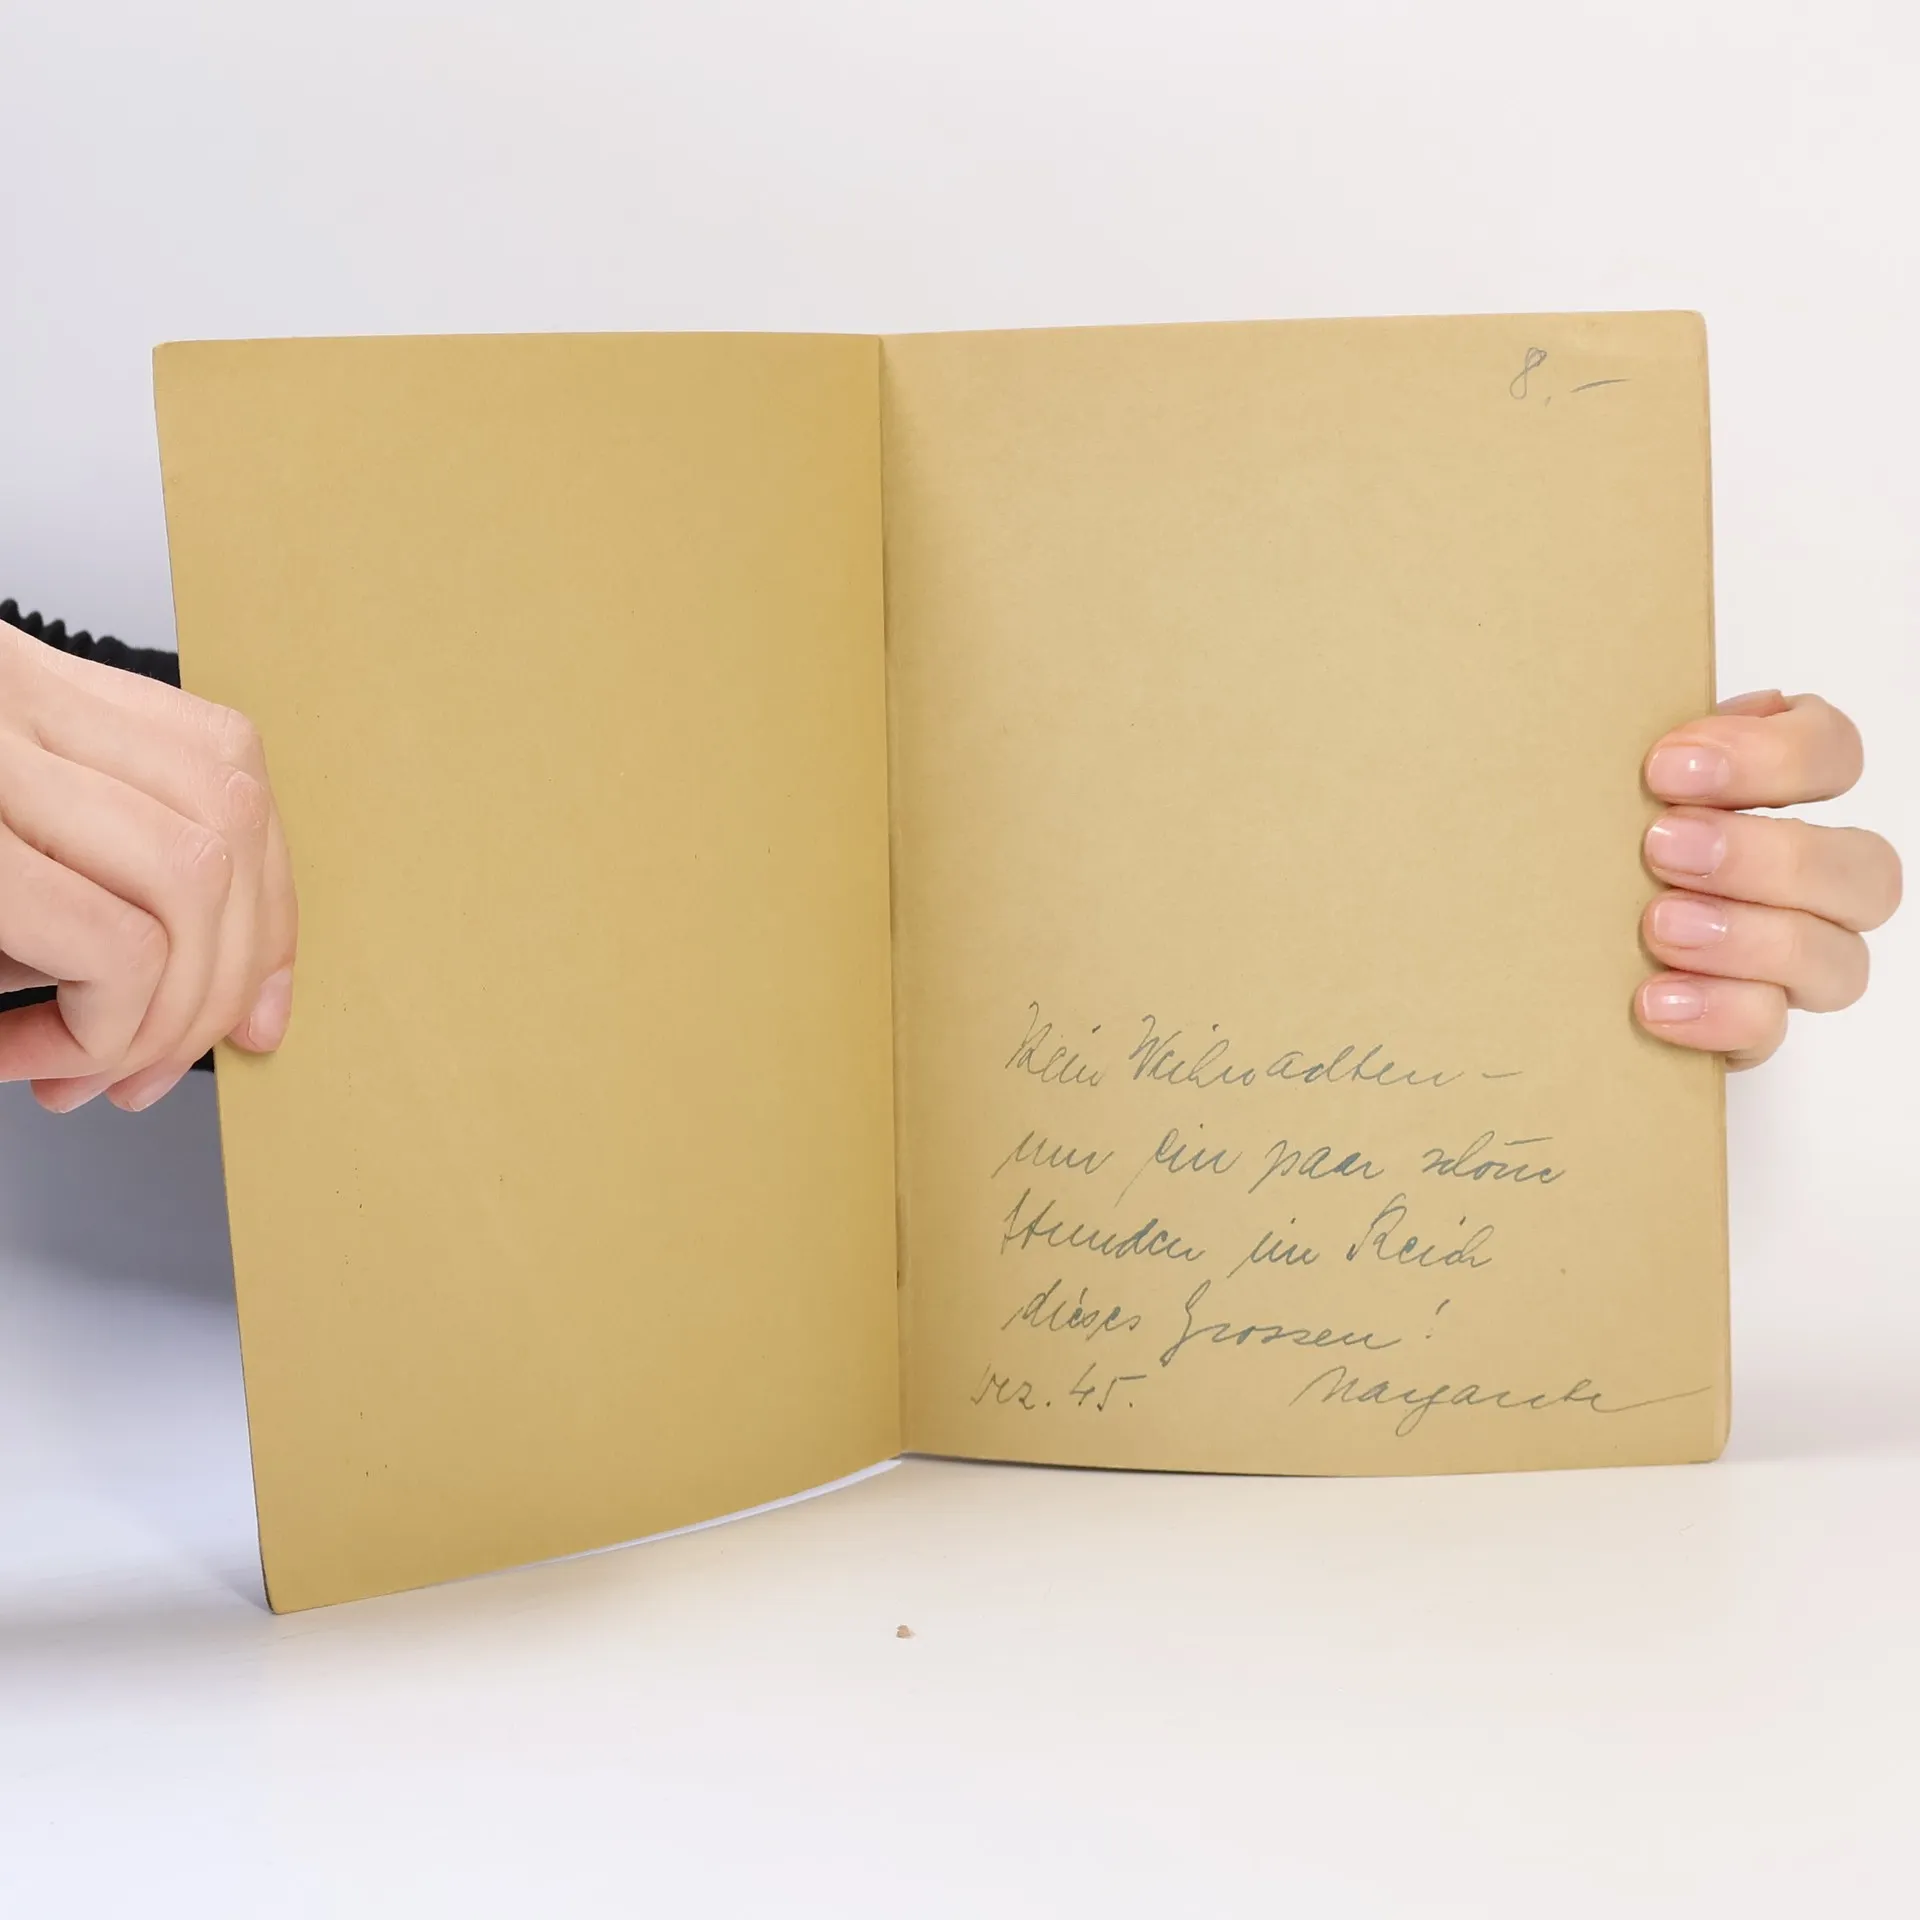 8,–
Kein Weihnachten –
nur ein paar schöne
Stunden im Reich
dieses Grossen!
Dez. 45. Margarete